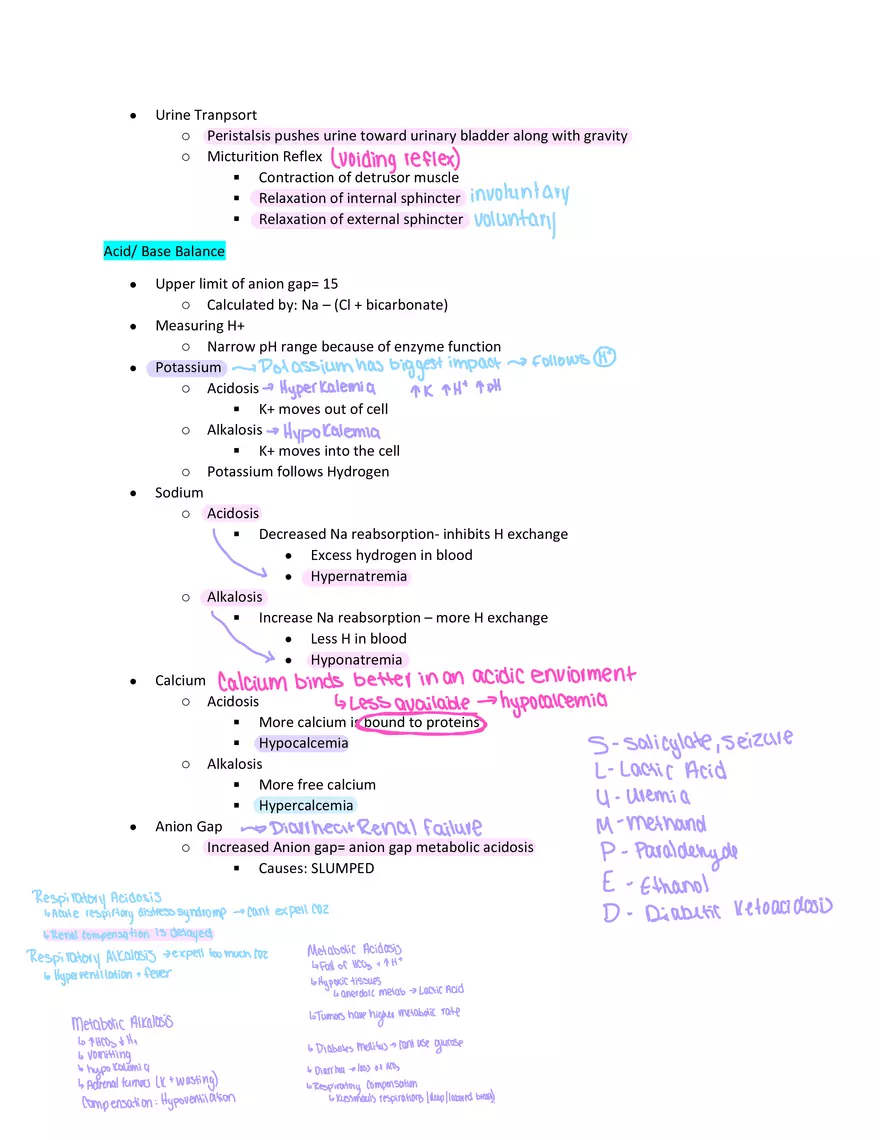 • Urine Tranpsort
○ Peristalsis pushes urine toward urinary bladder along with gravity
○ Micturition Reflex (voiding reflex)
▪ Contraction of detrusor muscle
▪ Relaxation of internal sphincter involuntary
▪ Relaxation of external sphincter voluntary
Acid/ Base Balance
• Upper limit of anion gap= 15
○ Calculated by: Na – (Cl + bicarbonate)
• Measuring H+
○ Narrow pH range because of enzyme function
• Potassium → Potassium has biggest impact → follows H+
○ Acidosis → Hyperkalemia ↑K ↑H+ ↑pH
▪ K+ moves out of cell
○ Alkalosis → Hypokalemia
▪ K+ moves into the cell
○ Potassium follows Hydrogen
• Sodium
○ Acidosis
▪ Decreased Na reabsorption- inhibits H exchange
• Excess hydrogen in blood
• Hypernatremia
○ Alkalosis
▪ Increase Na reabsorption – more H exchange
• Less H in blood
• Hyponatremia
• Calcium Calcium binds better in an acidic enviorment
○ Acidosis ↳ Less available → hypocalcemia
▪ More calcium is bound to proteins
▪ Hypocalcemia
○ Alkalosis
▪ More free calcium
▪ Hypercalcemia
• Anion Gap → Diarrhea + Renal Failure
○ Increased Anion gap= anion gap metabolic acidosis
▪ Causes: SLUMPED
S - Salicylate, seizure
L - Lactic Acid
U - Uremia
M - Methanol
P - Paraldehyde
E - Ethanol
D - Diabetic Ketoacidosis
Respiratory Acidosis
↳ Acute respiratory distress syndromp → cant expell CO2
↳ Renal compensation is delayed
Respiratory Alkalosis → expell too much CO2
↳ Hyperventilation + fever
Metabolic Alkalosis
↳ ↑HCO3 ↓H+
↳ vomitting
↳ hypokalemia
↳ Adrenal tumors (K+ wasting)
Compensation: Hypoventilation
Metabolic Acidosis
↳ Fall of HCO3 + ↑H+
↳ Hypoxic tissues
↳ anerobic metab → Lactic Acid
↳ Tumors have higher metabolic rate
↳ Diabetes mellitus → cant use glucose
↳ Diarrhea → loss of
↳ Respiratory Compensation
↳ Kussmauls respirations (deep/labored breath)